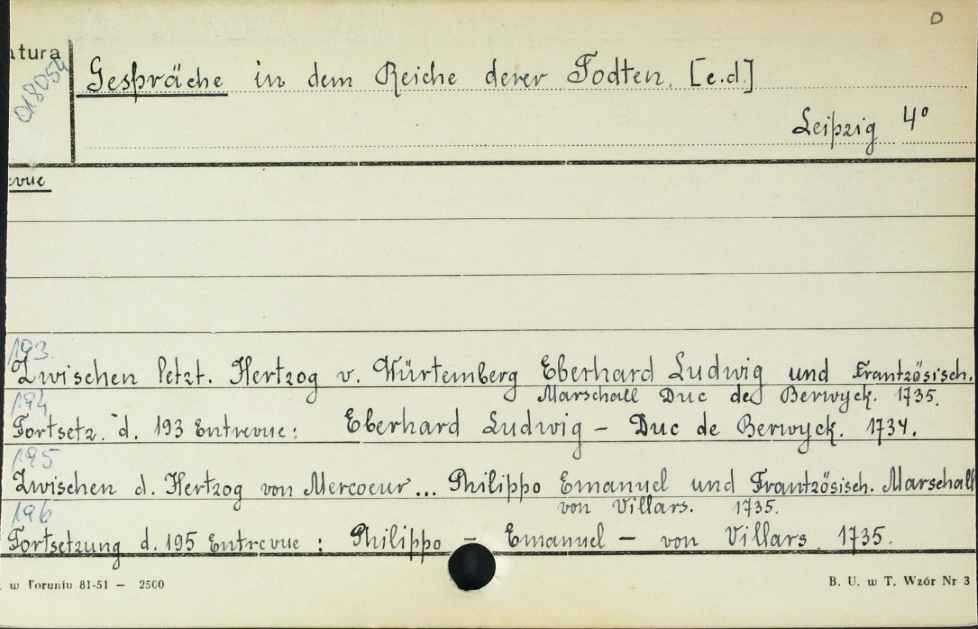 0
tura
018054
Gespräche in dem Reiche derer Todten. [e.d.]
Leipzig 4°
evue
193.
Zwischen letzt. Hertzog v. Würtemberg Eberhard Ludwig und Frantzösisch.
Marschall Duc de Berwyck. 1735.
194
Fortsetz. d. 193 Entrevue: Eberhard Ludwig – Duc de Berwyck. 1734.
195
Zwischen d. Hertzog von Mercoeur... Philippo Emanuel und Frantzösisch. Marschall
von Villars. 1735.
196
Fortsetzung d. 195 Entrevue : Philippo – Emanuel – von Villars 1735.
w Toruniu 81-51 — 2500
B. U. w T. Wzór Nr 3